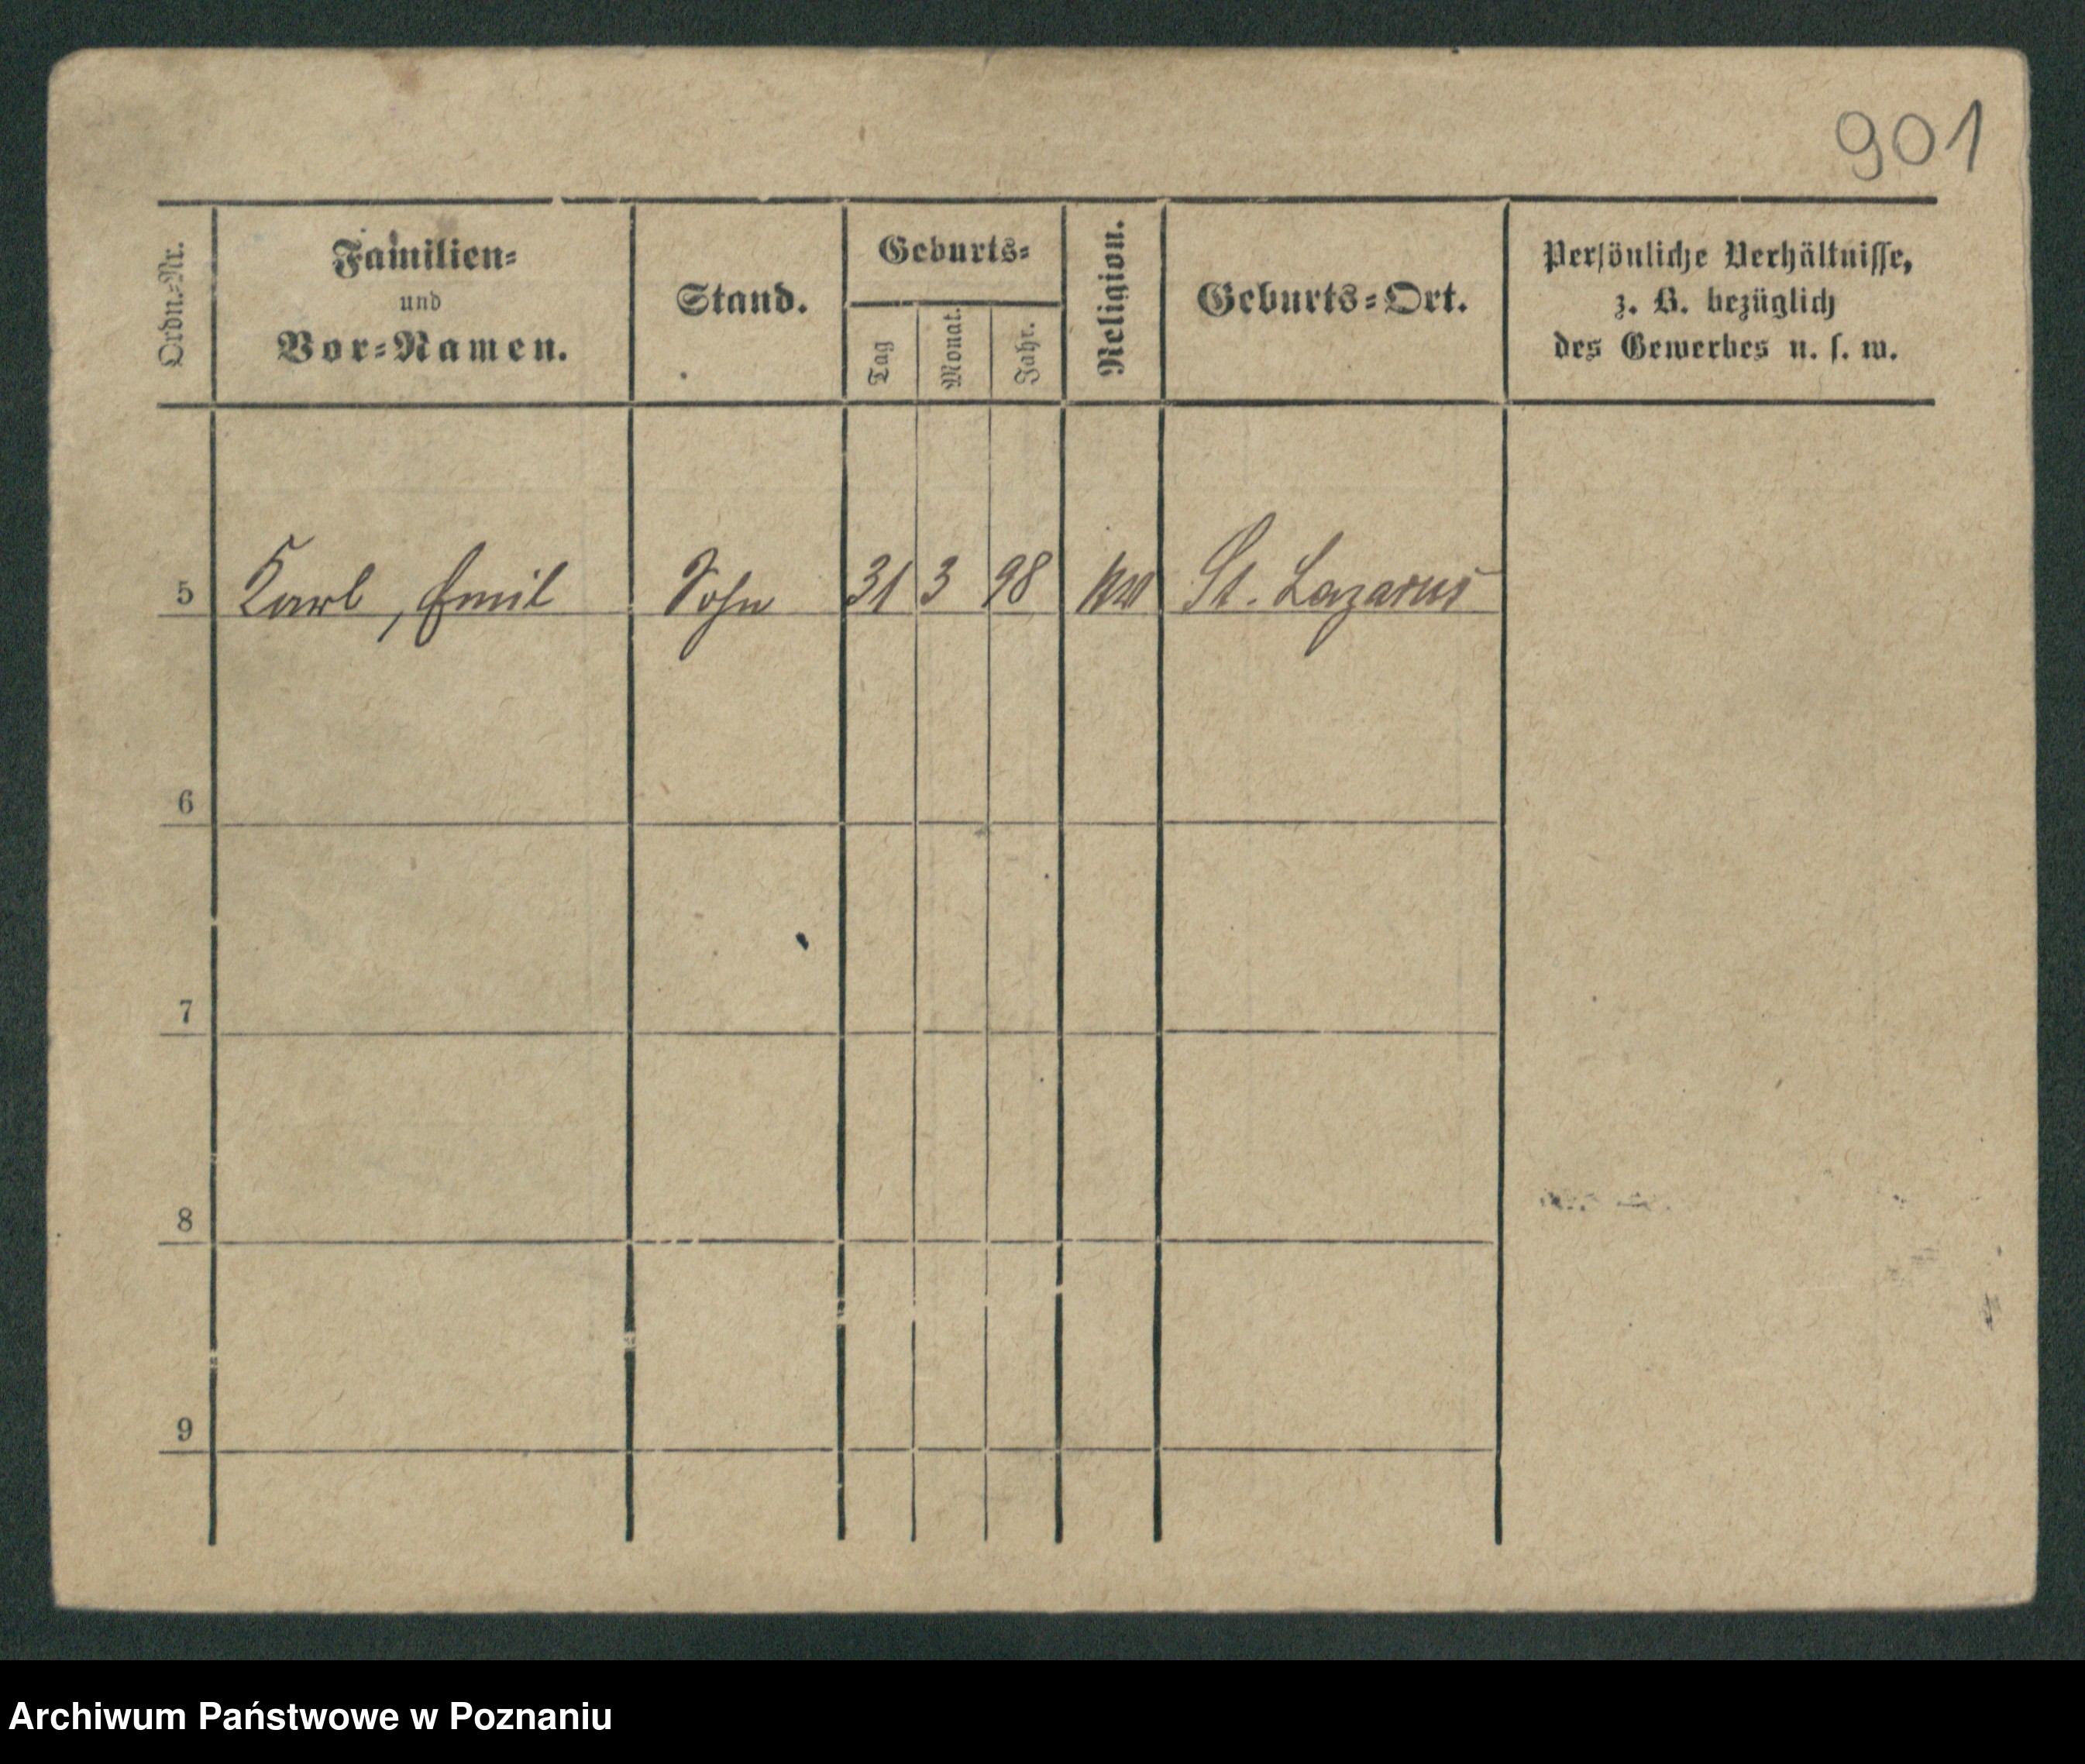 901
Ordn.-Nr.
Familien-
und
Vor-Namen.
Stand.
Geburts-
Tag
Monat.
Jahr.
Religion.
Geburts-Ort.
Persönliche Verhältnisse,
z. B. bezüglich
des Gewerbes u. s. w.
5 Karl, Emil Sohn 31 3 98 St. Lazarus
6
7
8
9
Archiwum Państwowe w Poznaniu